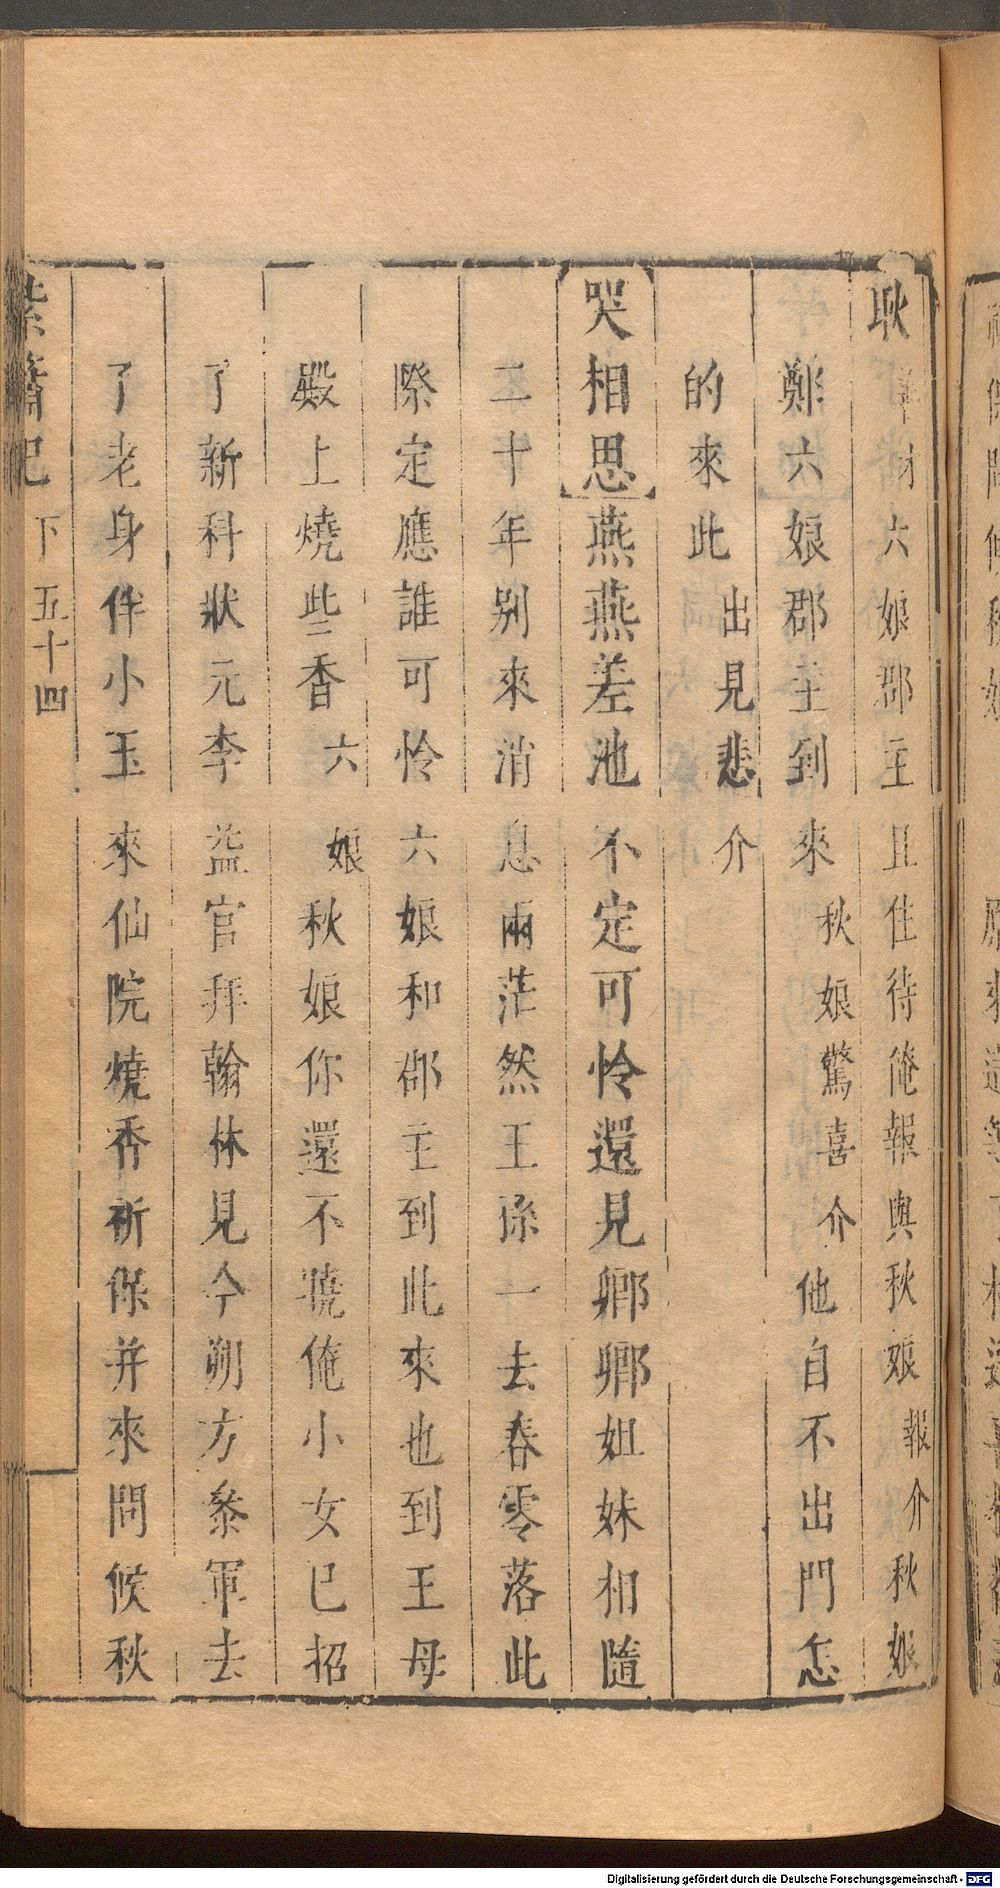 耿
六娘郡主且住待俺報與秋娘報介秋娘
鄭六娘郡主到來秋娘驚喜介他自不出門怎
的來此出見悲介
哭相思燕燕差池不定可怜還見卿卿姐妹相隨
二十年别來消息兩茫然王孫一去春零落此
際定應誰可怜六娘和郡主到此來也到王母
殿上燒些香六娘秋娘你還不曉俺小女已招
了新科狀元李益官拜翰林見今朔方叅軍去
了老身伴小玉來仙院燒香祈保并來問候秋
紫簫記 下 五十四
Digitalisierung gefördert durch die Deutsche Forschungsgemeinschaft - DFG